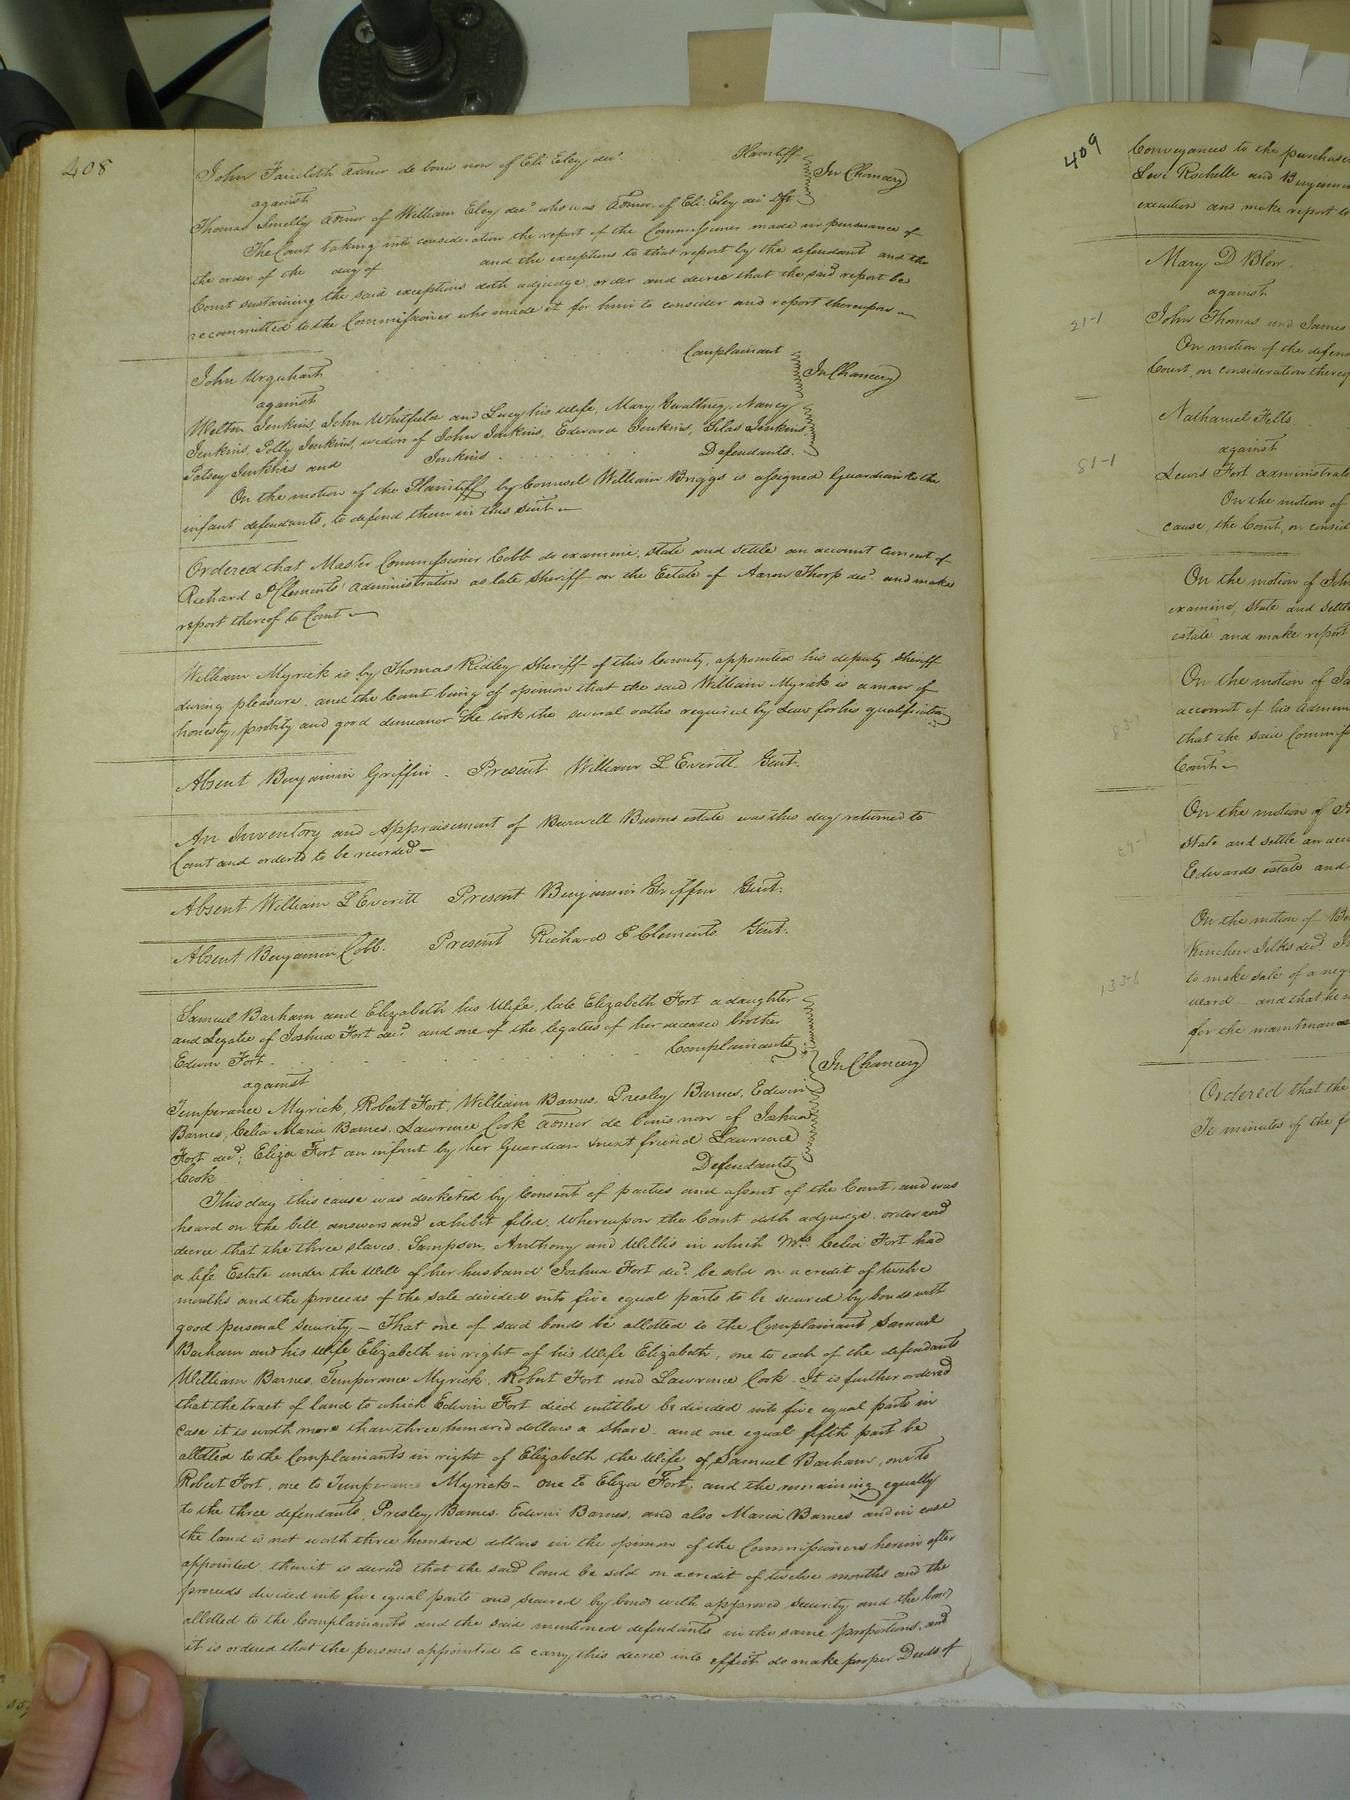 408
John Faircloth admor de bonis non of Eli Eley decd. Plaintiff
against In Chancery
Thomas Smelly admor of William Eley decd who was admor of Eli Eley decd Dft.
The Court taking into consideration the report of the Commissioner made in pursuance of
the order of the day of and the exceptions to that report by the defendant and the
Court sustaining the said exceptions doth adjudge, order and decree that the said report be
recommitted to the Commissioner who made it for him to consider and report thereupon
John Urquhart Complainant
against In Chancery
Welton Jenkins, John Whitfield and Lucy his wife, Mary Gwaltney, Nancy
Jenkins, Polly Jenkins, widow of John Jenkins, Edward Jenkins, Silas Jenkins,
Patsey Jenkins and Jenkins Defendants.
On the motion of the Plaintiff by Counsel William Briggs is assigned Guardian to the
infant defendants, to defend them in this suit
Ordered that Master Commissioner Cobb do examine, state and settle an account current of
Richard P Clements administration as late Sheriff on the Estate of Aaron Thorp decd. and make
report thereof to Court
William Myrick is by Thomas Ridley Sheriff of this County, appointed his deputy Sheriff
during pleasure, and the Court being of opinion that the said William Myrick is a man of
honesty, probity and good demeanor He took the several oaths required by Law for his qualification
Absent Benjamin Griffin. Present William L Everitt. Gent.
An Inventory and Appraisement of Burwell Burns estate was this day returned to
Court and ordered to be recorded —
Absent William L Everitt Present Benjamin Griffin Gent.
Absent Benjamin Cobb. Present Richard P Clements Gent.
Samuel Barham and Elizabeth his Wife, late Elizabeth Fort a daughter
and Legatee of Joshua Fort decd. and one of the legatees of her deceased brother
Edwin Fort. Complainants
against In Chancery
Temperance Myrick, Robert Fort, William Barnes, Presley Barnes, Edwin
Barnes, Celia Maria Barnes, Lawrence Cook admor de bonis non of Joshua
Fort decd; Eliza Fort an infant by her Guardian & next friend Lawrence
Cook Defendants
This day this cause was docketed by Consent of parties and assent of the Court, and was
heard on the bill answers and exhibit filed, Whereupon the Court doth adjudge, order and
decree that the three slaves, Sampson, Anthony and Willis in which Mrs. Celia Fort had
a life Estate under the Will of her husband Joshua Fort decd. be sold on a credit of twelve
months and the proceeds of the sale divided into five equal parts to be secured by bonds with
good personal security — That one of said bonds be allotted to the Complainant Samuel
Barham and his wife Elizabeth in right of his Wife Elizabeth, one to each of the defendants
William Barnes, Temperance Myrick, Robert Fort and Lawrence Cook. It is further ordered
that the tract of land to which Edwin Fort died entitled be divided into five equal parts in
case it is worth more than three hundred dollars a share. and one equal fifth part be
allotted to the Complainants in right of Elizabeth the Wife of Samuel Barham, one to
Robert Fort, one to Temperance Myrick — one to Eliza Fort, and the remaining equally
to the three defendants, Presley Barnes, Edwin Barnes, and also Maria Barnes and in case
the land is not worth three hundred dollars in the opinion of the Commissioners herein after
appointed, then it is decreed that the said land be sold on a credit of twelve months and the
proceeds divided into five equal parts and secured by bonds with approved security, and the bonds
allotted to the Complainants and the said mentioned defendants in the same proportions, and
it is ordered that the persons appointed to carry this decree into effect do make proper Deeds of
409
Conveyances to the purchase
Levi Rochelle and Benjamin
execution and make report to
Mary D Blow
against
21-1
John Thomas and James
On motion of the defend
Court, on consideration thereof
Nathaniel Fells
against
81-1
Lewis Fort administrat
On the motion of
cause, the Court, on consid
On the motion of John
examine, State and settle
estate and make report
On the motion of Ja
account of his admin
that the said Commiss
Court
On the motion of
State and settle an acc
Edwards estate and
On the motion of Be
Kinchen Jelks decd.
to make sale of a neg
ward — and that he
for the maintenance
Ordered that the
Te minutes of the fo